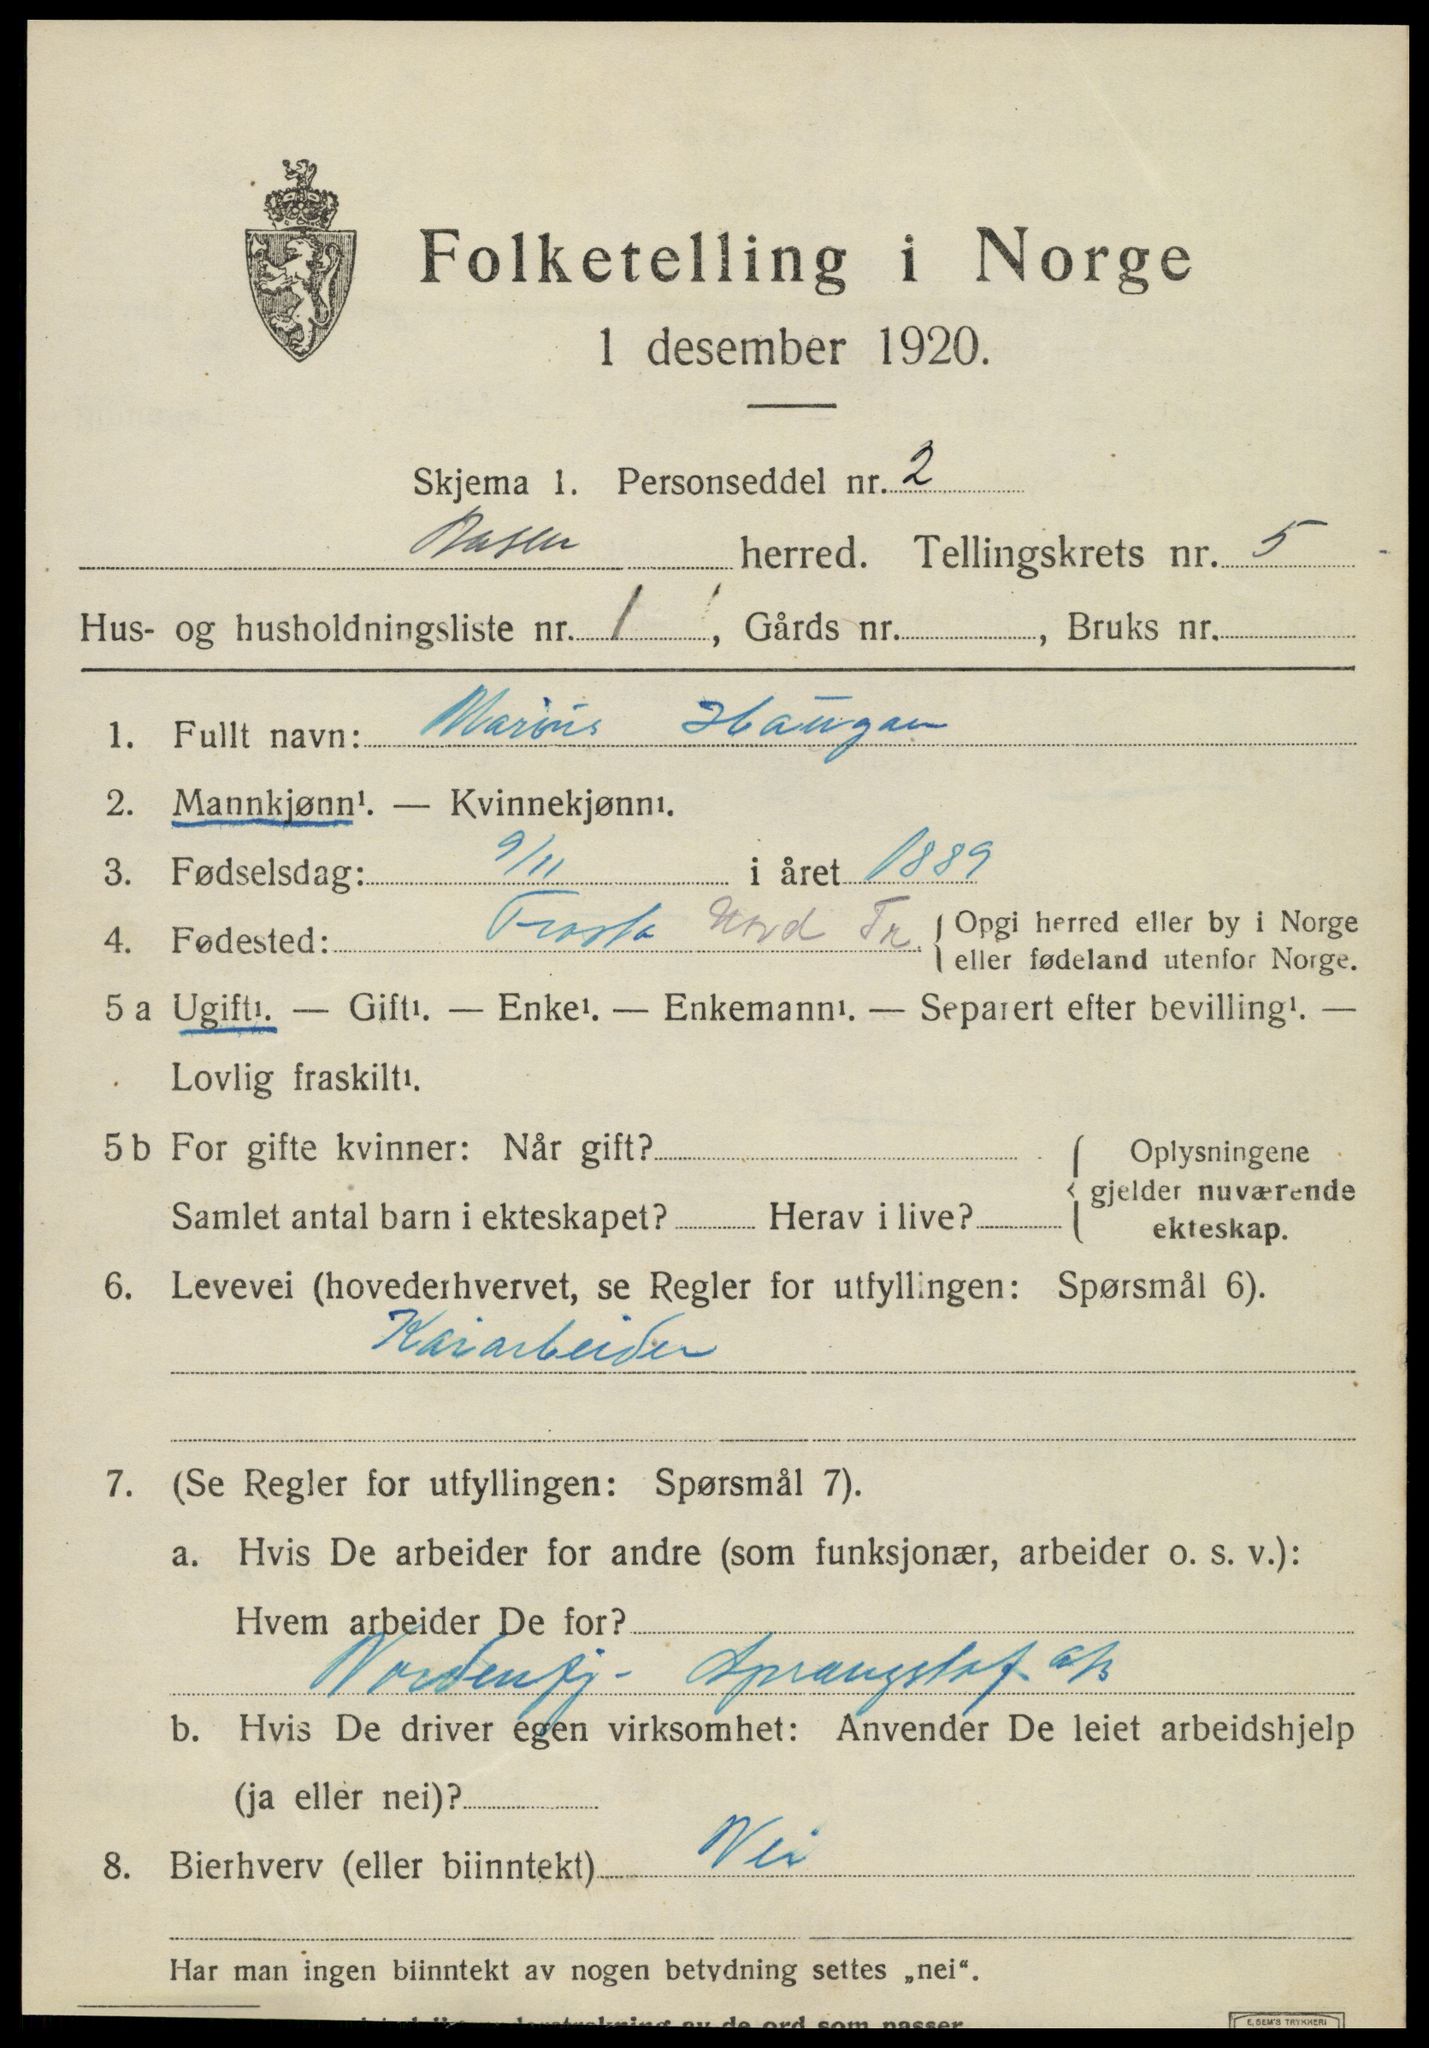 Folketelling i Norge
1 desember 1920.
Skjema 1. Personseddel nr. 2
herred. Tellingskrets nr. 5
Hus- og husholdningsliste nr. 1, Gårds nr. , Bruks nr.
1. Fullt navn: Marius Haugan
2. Mannkjønn¹. — Kvinnekjønn¹.
3. Fødselsdag: 9/11 i året 1889
4. Fødested: Frosta Nord Tr. { Opgi herred eller by i Norge
eller fødeland utenfor Norge.
5 a Ugift¹. — Gift¹. — Enke¹. — Enkemann¹. — Separert efter bevilling¹. —
Lovlig fraskilt¹.
5 b For gifte kvinner: Når gift? { Oplysningene
gjelder nuværende
Samlet antal barn i ekteskapet? Herav i live?
ekteskap.
6. Levevei (hovederhvervet, se Regler for utfyllingen: Spørsmål 6).
Kaiarbeider
7. (Se Regler for utfyllingen: Spørsmål 7).
a. Hvis De arbeider for andre (som funksjonær, arbeider o. s. v.):
Hvem arbeider De for?
Nordenfj- Sprængstof a/s
b. Hvis De driver egen virksomhet: Anvender De leiet arbeidshjelp
(ja eller nei)?
8. Bierhverv (eller biinntekt) Nei
Har man ingen biinntekt av nogen betydning settes „nei“.
av de ord som passer
E. SEM'S TRYKKERI